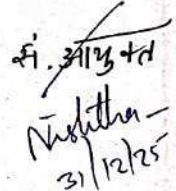 सं. आयुक्त
Nishitha
31/12/25